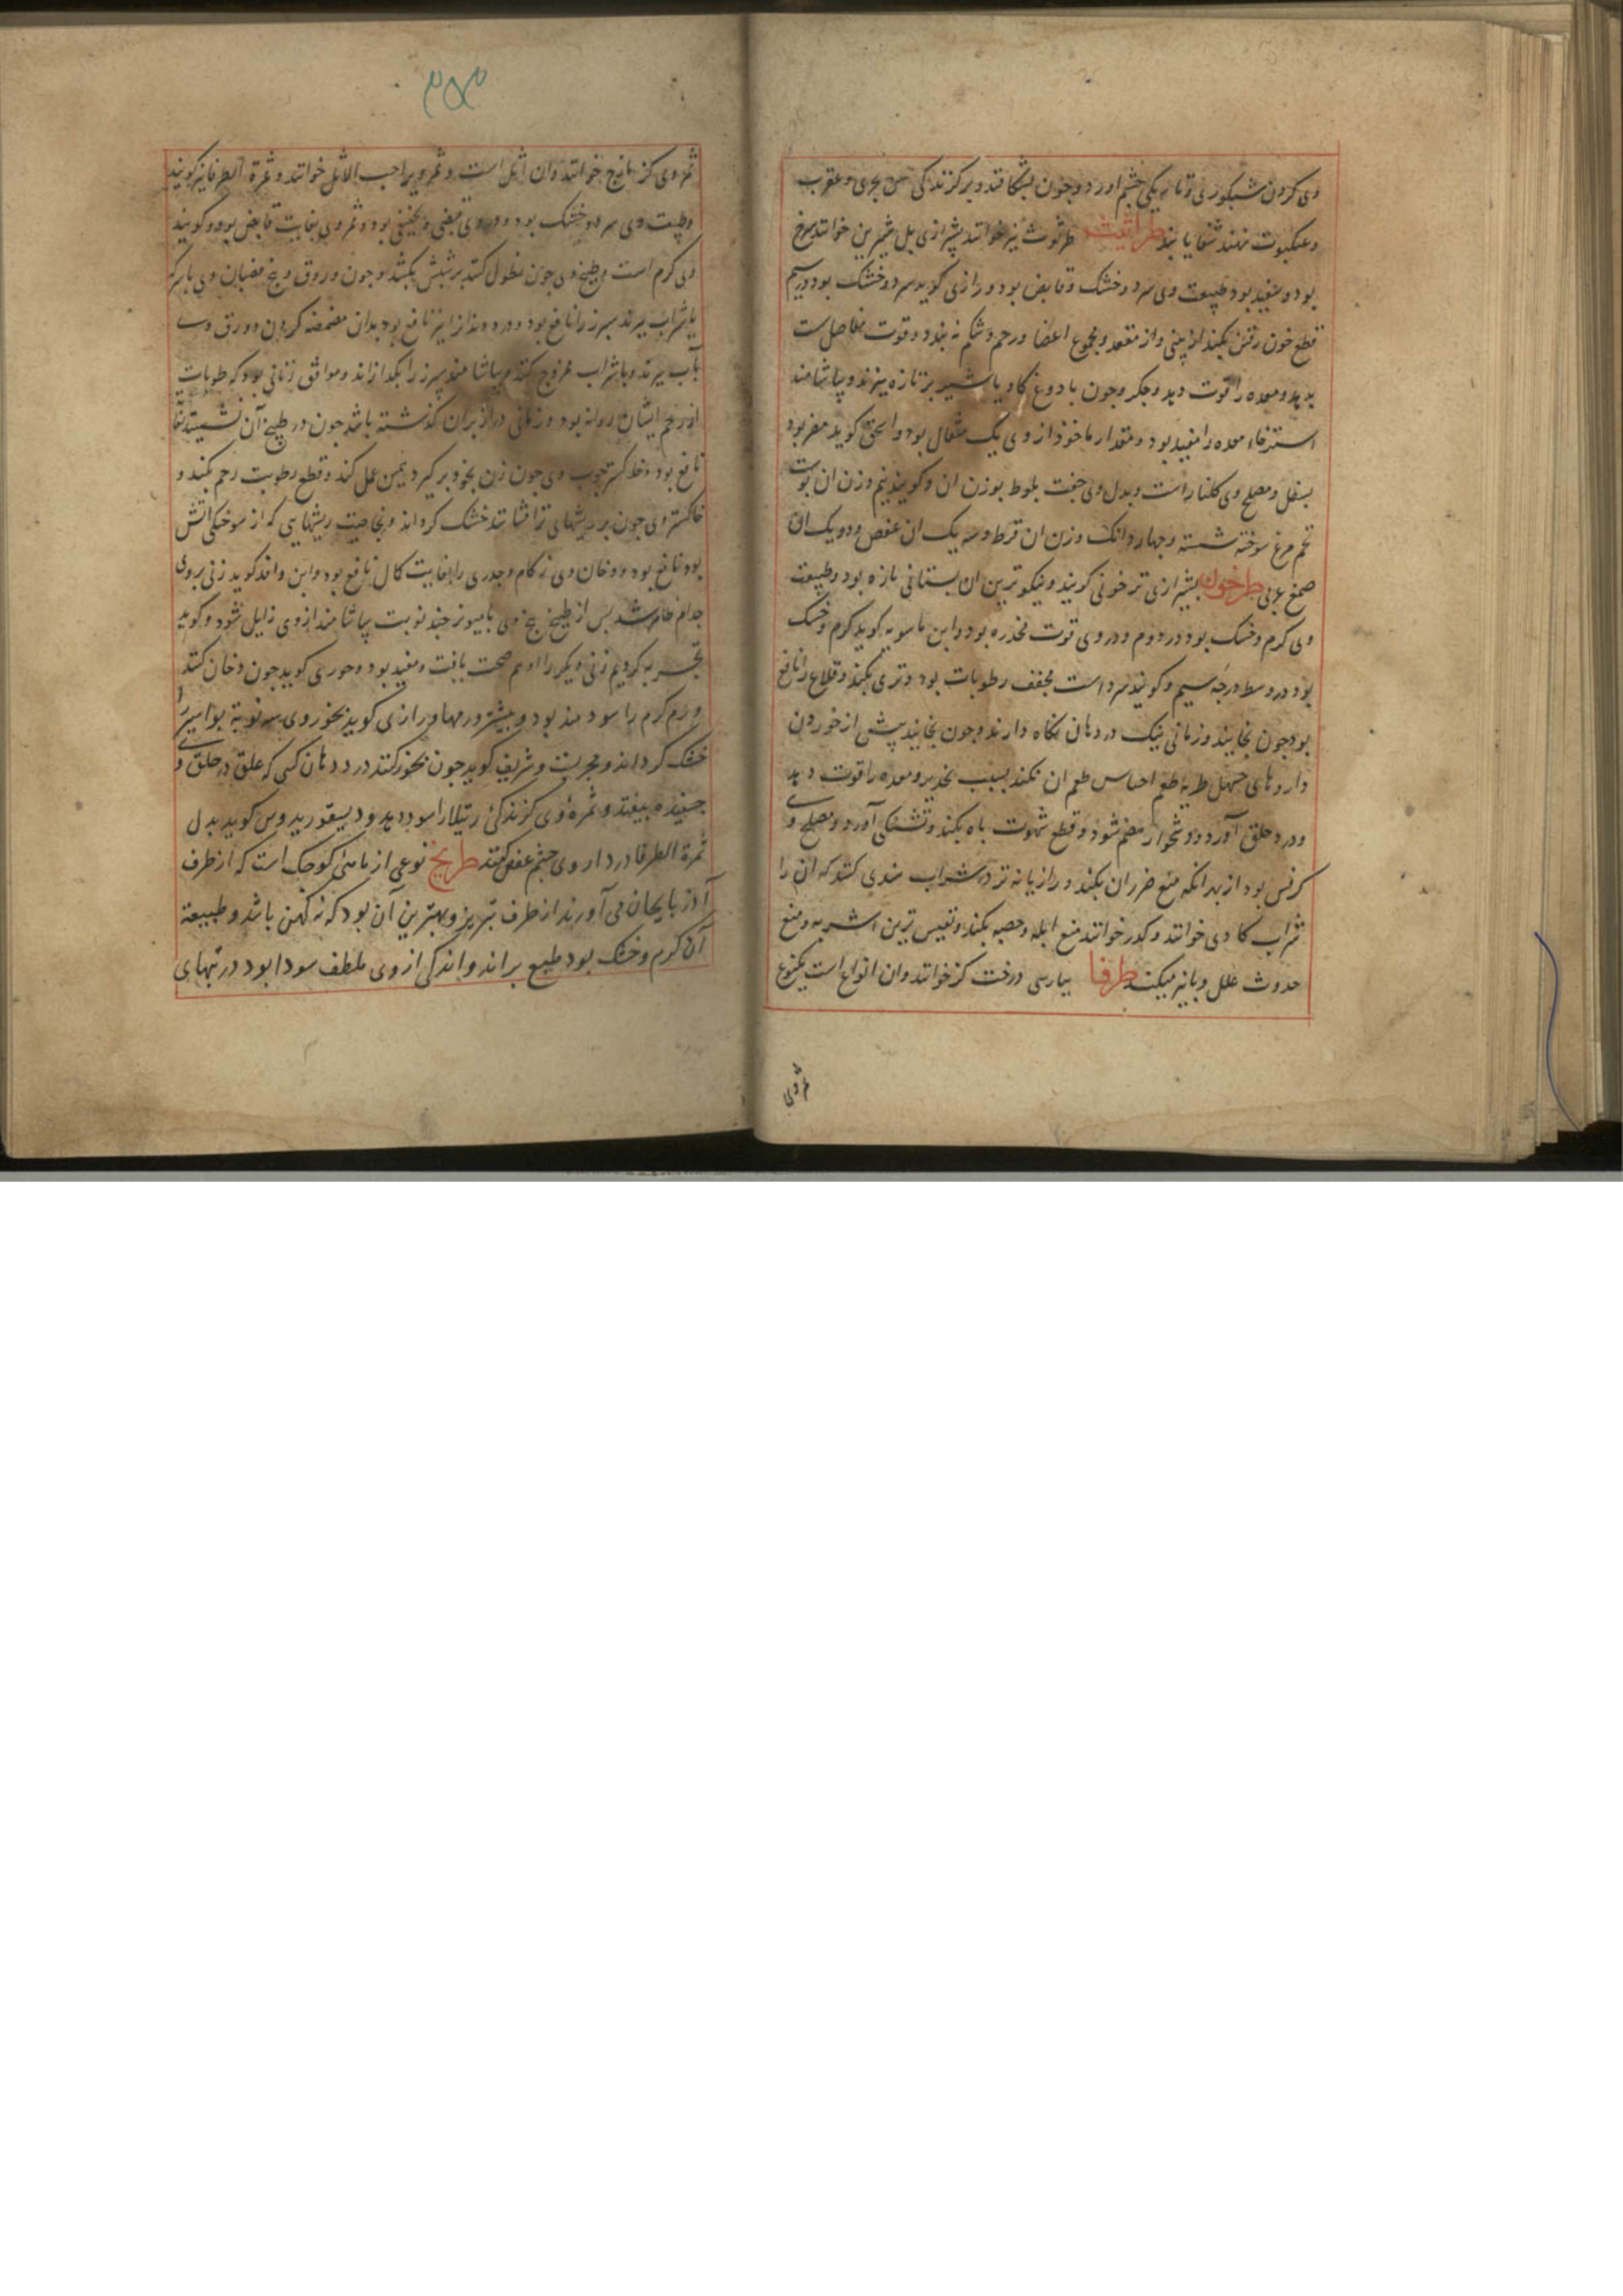 وی کردن شبکوری و تاریکی چشم آورد و چون بشکافند و بر کزندکی بحری و عقرب
و عنکبوت نهند شفا یابند طراثیث طرثوث نیز خوانند بشیرازی بل شیرین خوانند سرخ
بود و سفید بود طبیعت وی سرد و خشک و قابض بود و رازی کوید سرد و خشک بود در سیم
قطع خون رفتن بکند از بینی و از مقعد و مجموع اعضا و رحم و شکم ببندد و قوت مفاصل سست
بدهد و معده را قوت دهد و جکر و چون با دوغ کاو یا شیر بز تازه بپزند و بیاشامند
استرخاء معده را مفید بود و مقدار ماخوذ از وی یک مثقال بود و اسحق کوید مضر بود
بسفل و مصلح وی کلنار است و بدل وی جفت بلوط بوزن ان و کویند نیم وزن ان پوست
تخم مرغ سوخته شسته و چهار دانک وزن ان قرط و سه یک ان عفص و دو یک ان
صمغ عربی طرخون بشیرازی ترخونی کویند و نیکوترین ان بستانی تازه بود و طبیعت
وی کرم و خشک بود در دوم و در وی قوت مخدره بود و ابن ماسویه کوید کرم و خشک
بود در وسط درجه سیم و کویند سرد است مجفف رطوبات بود و تری بکند و قلاع را نافع
بود چون بخایند و زمانی نیک در دهان نکاه دارند و چون بخایند پیش از خوردن
داروهای مسهل طریه طعم احساس طعم ان نکند بسبب تخدیر و معده را قوت دهد
و درد حلق آورد و دشخوار هضم شود و قطع شهوت باه بکند و تشنکی آورد و مصلح وی
کرفس بود از بهر انکه منع ضرر ان بکند و رازیانه تر و شراب هندی کنند که ان را
شراب کادی خوانند و کدر خوانند منع ابله و حصبه بکند و نفیس ترین اشربه و منع
حدوث علل وبا نیز میکند طرفا بپارسی درخت کز خوانند و ان انواع است یکنوع
ثمروی
۳۵۳
ثمر وی کزمازج خوانند و ان اثل است و ثمر ویرا حب الاثل خوانند و ثمرة الطرفا نیز کویند
و طبیعت وی سرد و خشک بود و در وی قبضی و تجفیفی بود و ثمر وی بغایت قابض بود و کویند
وی کرم است و طبیخ وی چون نطول کنند بر شپش بکشد و چون ورق و بیخ و قضبان وی با سرکه
یا شراب بپزند سپرز را نافع بود و درد دندان را نیز نافع بود بدان مضمضه کردن و ورق وی
بآب بپزند و با شراب ممزوج کنند و بیاشامند سپرز را بکدازاند و موافق زنانی بود که رطوبات
از رحم ایشان روانه بود و زمانی دراز بران کذشته باشد چون در طبیخ آن نشینند
نافع بود و خاکستر چوب وی چون زن بخود برکیرد همین عمل کند و قطع رطوبت رحم بکند و
خاکستر وی چون بر ریشهای تر افشانند خشک کرداند و بخاصیت ریشهایی که از سوختکی آتش
بود نافع بود و دخان وی زکام و جدری را بغایت کمال نافع بود و ابن وافد کوید زنی بر وی
جذام ظاهر شد پس از طبیخ بیخ وی با مویز چند نوبت بیاشامند از وی زایل شود و کوید
تجربه کردیم زنی دیکر را او هم صحت یافت و مفید بود و حوری کوید چون دخان کنند
ورم کرم را سودمند بود و بیشتر ورمها و رازی کوید بخور وی سه نوبة بواسیر را
خشک کرداند و مجربست و شریف کوید چون بخور کنند در دهان کسی که علق در حلق وی
چفیده بیفتد و ثمره وی کزندکی رتیلا را سود دهد و دیسقوریدوس کوید بدل
ثمرة الطرفا در داروی چشم عفص کنند طریخ نوعی از ماهی کوچک است که از طرف
آذربایجان می آورند از طرف تبریز و بهترین آن بود که نه کهن باشد و طبیعة
آن کرم و خشک بود طبع براند و اندکی از وی ملطف سودا بود در تبهای